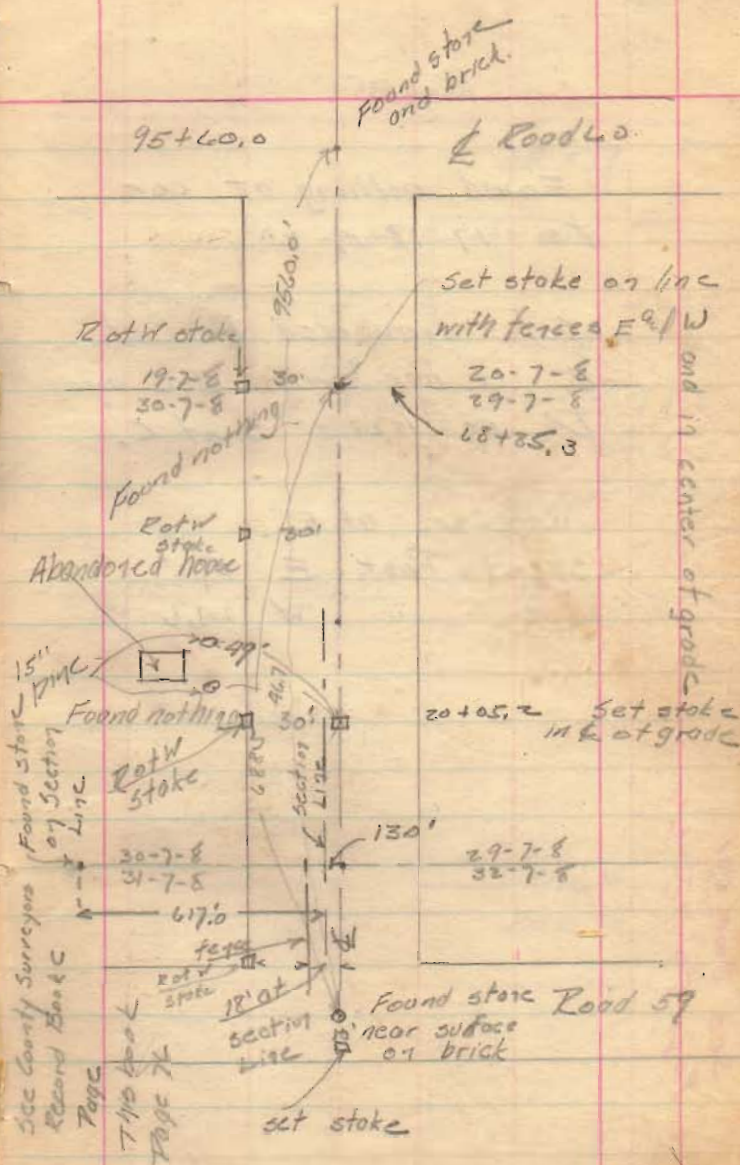 Found stone
and brick.
95+60.0
℄ Road 60
9560.0'
Set stake on line
with fences E & W
and in center of grade
R of W stake
19-7-8
30-7-8
30'
20-7-8
29-7-8
68+25.3
Found nothing
R of W
stake
30'
Abandoned house
49'
15"
Pine
Found nothing
30'
20+05.2
Set stake
in ℄ of grade
R of W
stake
Section
Line
130'
30-7-8
31-7-8
29-7-8
32-7-8
617.0
fence
R of W
stake
18' at
section
Line
Found stone
near surface
on brick
Road 59
set stake
Found stone
on Section
Line
See County Surveyors
Record Book C
Page
This book
Page 76